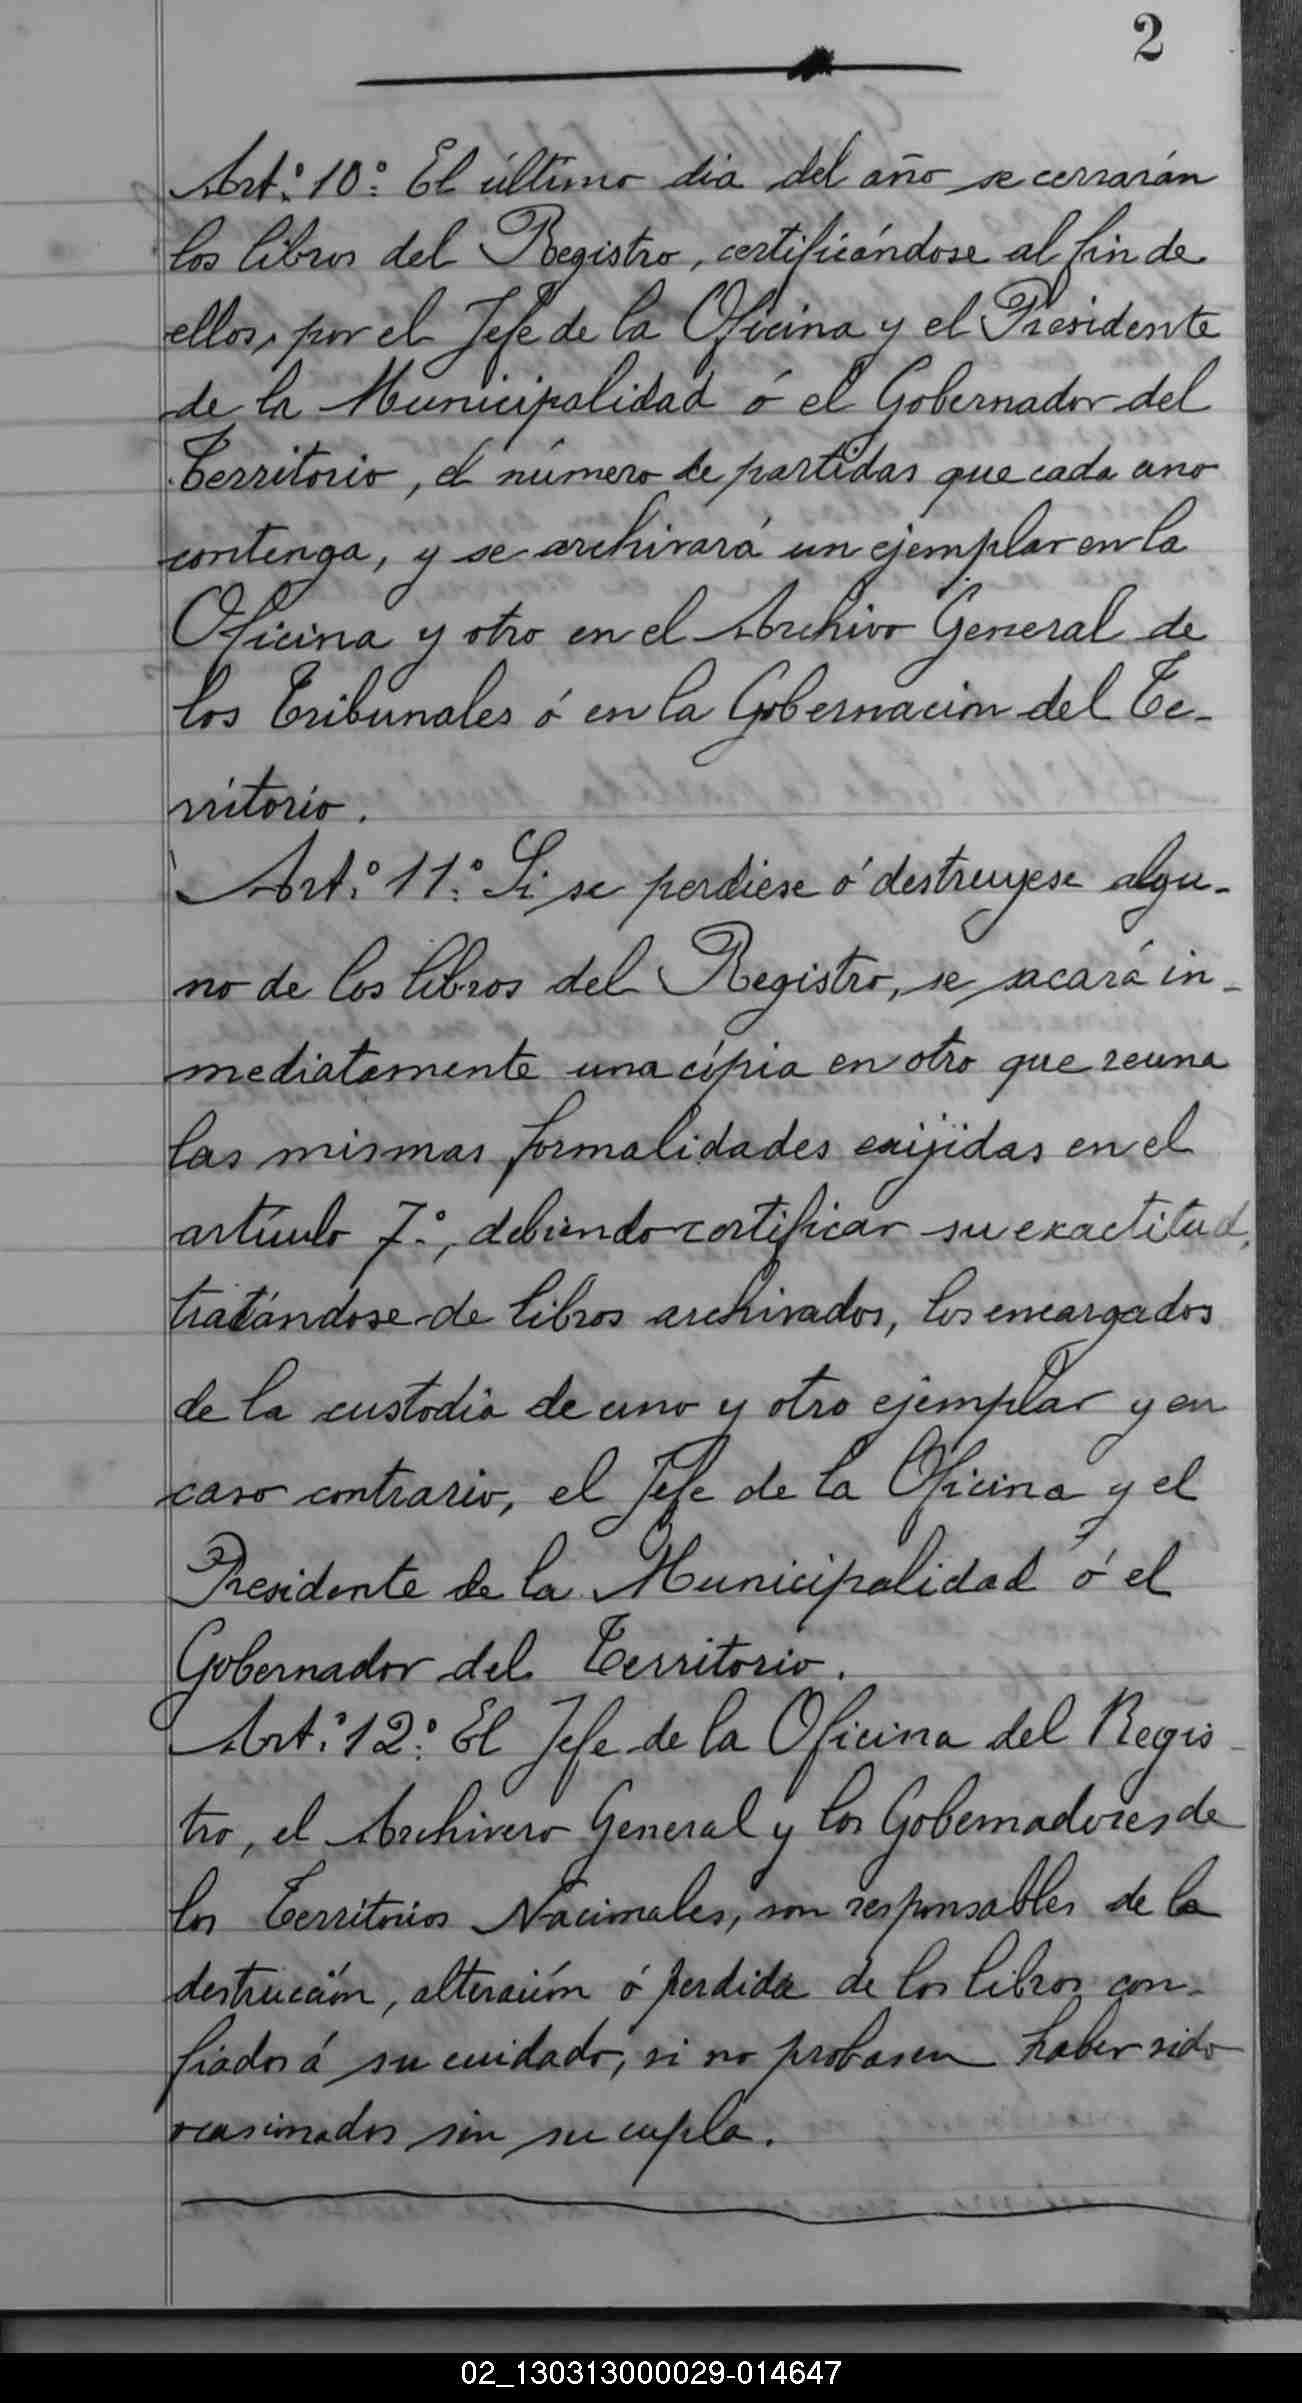 2
Art.º 10º. El último dia del año se cerrarán
los libros del Registro, certificándose al fin de
ellos, por el Jefe de la Oficina y el Presidente
de la Municipalidad ó el Gobernador del
Territorio, el número de partidas que cada uno
contenga, y se archivará un ejemplar en la
Oficina y otro en el Archivo General de
los Tribunales ó en la Gobernacion del Te-
rritorio.
Art.º 11º. Si se perdiese ó destruyese algu-
no de los libros del Registro, se sacará in-
mediatamente una cópia en otro que reuna
las mismas formalidades exijidas en el
artículo 7º., debiendo certificar su exactitud,
tratándose de libros archivados, los encargados
de la custodia de uno y otro ejemplar y en
caso contrario, el Jefe de la Oficina y el
Presidente de la Municipalidad ó el
Gobernador del Territorio.
Art.º 12º. El Jefe de la Oficina del Regis-
tro, el Archivero General y los Gobernadores de
los Territorios Nacionales, son responsables de la
destruccion, alteración ó perdida de los libros con-
fiados á su cuidado, si no probasen haber sido
ocasionados sin su culpa.
02_130313000029-014647